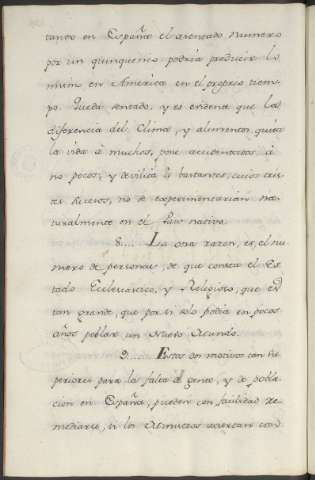 tando en España el avenzado Numero
por un quinquenio podria producir lo
mism en America en el proprio tiem-
po. Queda sentado, y es evidente que la
diferencia del Clima, y alimentos quita
la vida à muchos, pone accidentados à
no pocos, y devilita à bastantes, cuios
Sucesos, no se experimentarian na-
turalmente en el Pais nativo.
8..... La otra razon, es, el nu-
mero de personas, de que consta el Es-
tado Eclesiastico, y Religioso, que es
tan grande, que por si solo podia en pocos
años poblar un Nuevo Mundo.
9..... Estos dos motivos tan su-
periores para la falta de gente, y de pobla-
cion en España, pueden con facilidad re-
mediarse, si los Ministros aciertan con